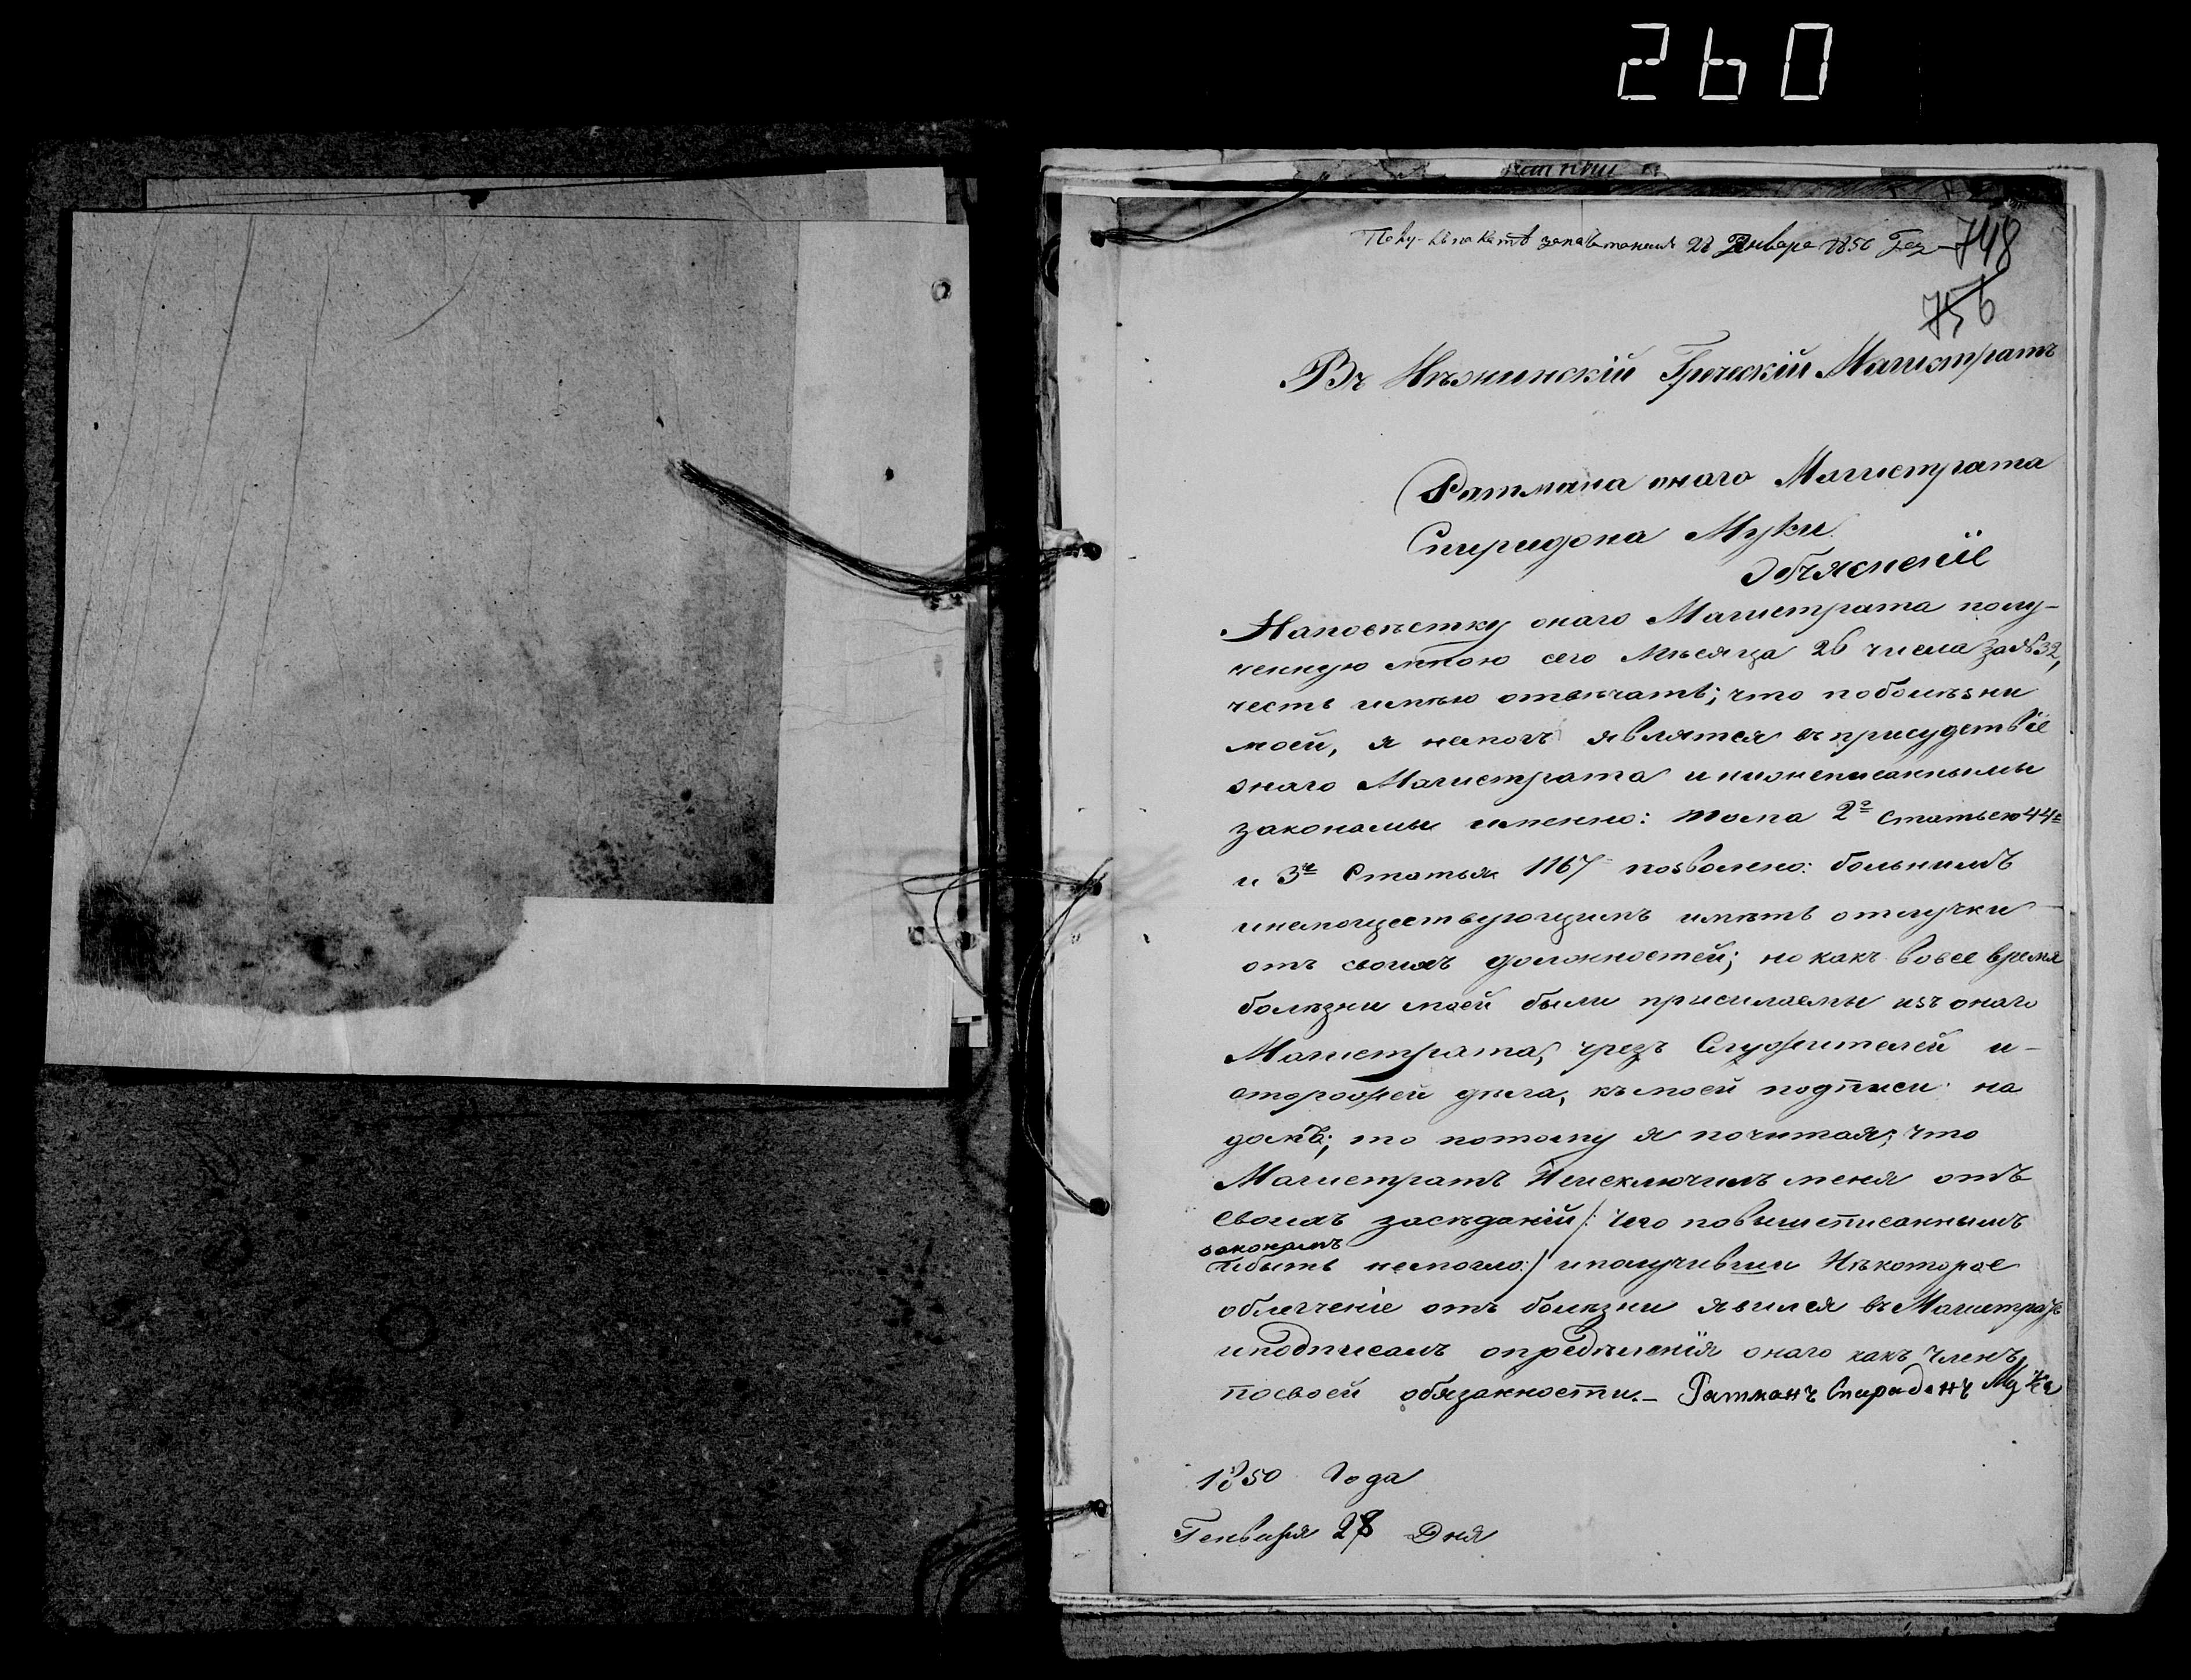 260
28 Января 1850 748
756
Въ Нѣжинскій Греческій Магистратъ
Ратмана онаго Магистрата
Спиридона Муки
Объясненіе
Наповѣстку онаго Магистрата полу-
ченную мною сего Мѣсяца 26 числа за №32,
честь имѣю отвѣчать; что поболѣзни
моей, я немогъ являтся въ присудствіе
онаго Магистрата
законамы именно: тома 2º Статьею 44º
и 3º Статья 1167 позволено: больнимъ
инемоществующимъ имѣть отлучки
отъ своихъ должностей; но какъ вовсе время
болѣзни моей были присилаемы изъ онаго
Магистрата, чрезъ Служителей и-
сторожей дѣла, къ моей подписи на
домъ; то потому я почитая; что
Магистратъ Неисключилъ меня отъ
своихъ засѣданій /: чего повышеписаннымъ
законамъ
ибыть немогло:/ иполучивши Нѣкоторое
облегченіе отъ болѣзни явился въ Магистратъ
иподписалъ опредѣленія онаго какъ Членъ,
посвоей обязанности.- Ратманъ Спиридонъ Мука
1850 Года
Генваря 28 Дня